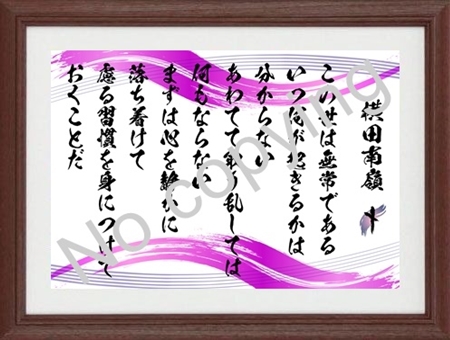 横田南嶺
この世は無常である
いつ何が起きるかは
分からない
あわてて取り乱しては
何もならない
まずは心を静かに
落ち着けて
慮る習慣を身につけて
おくことだ
No copying